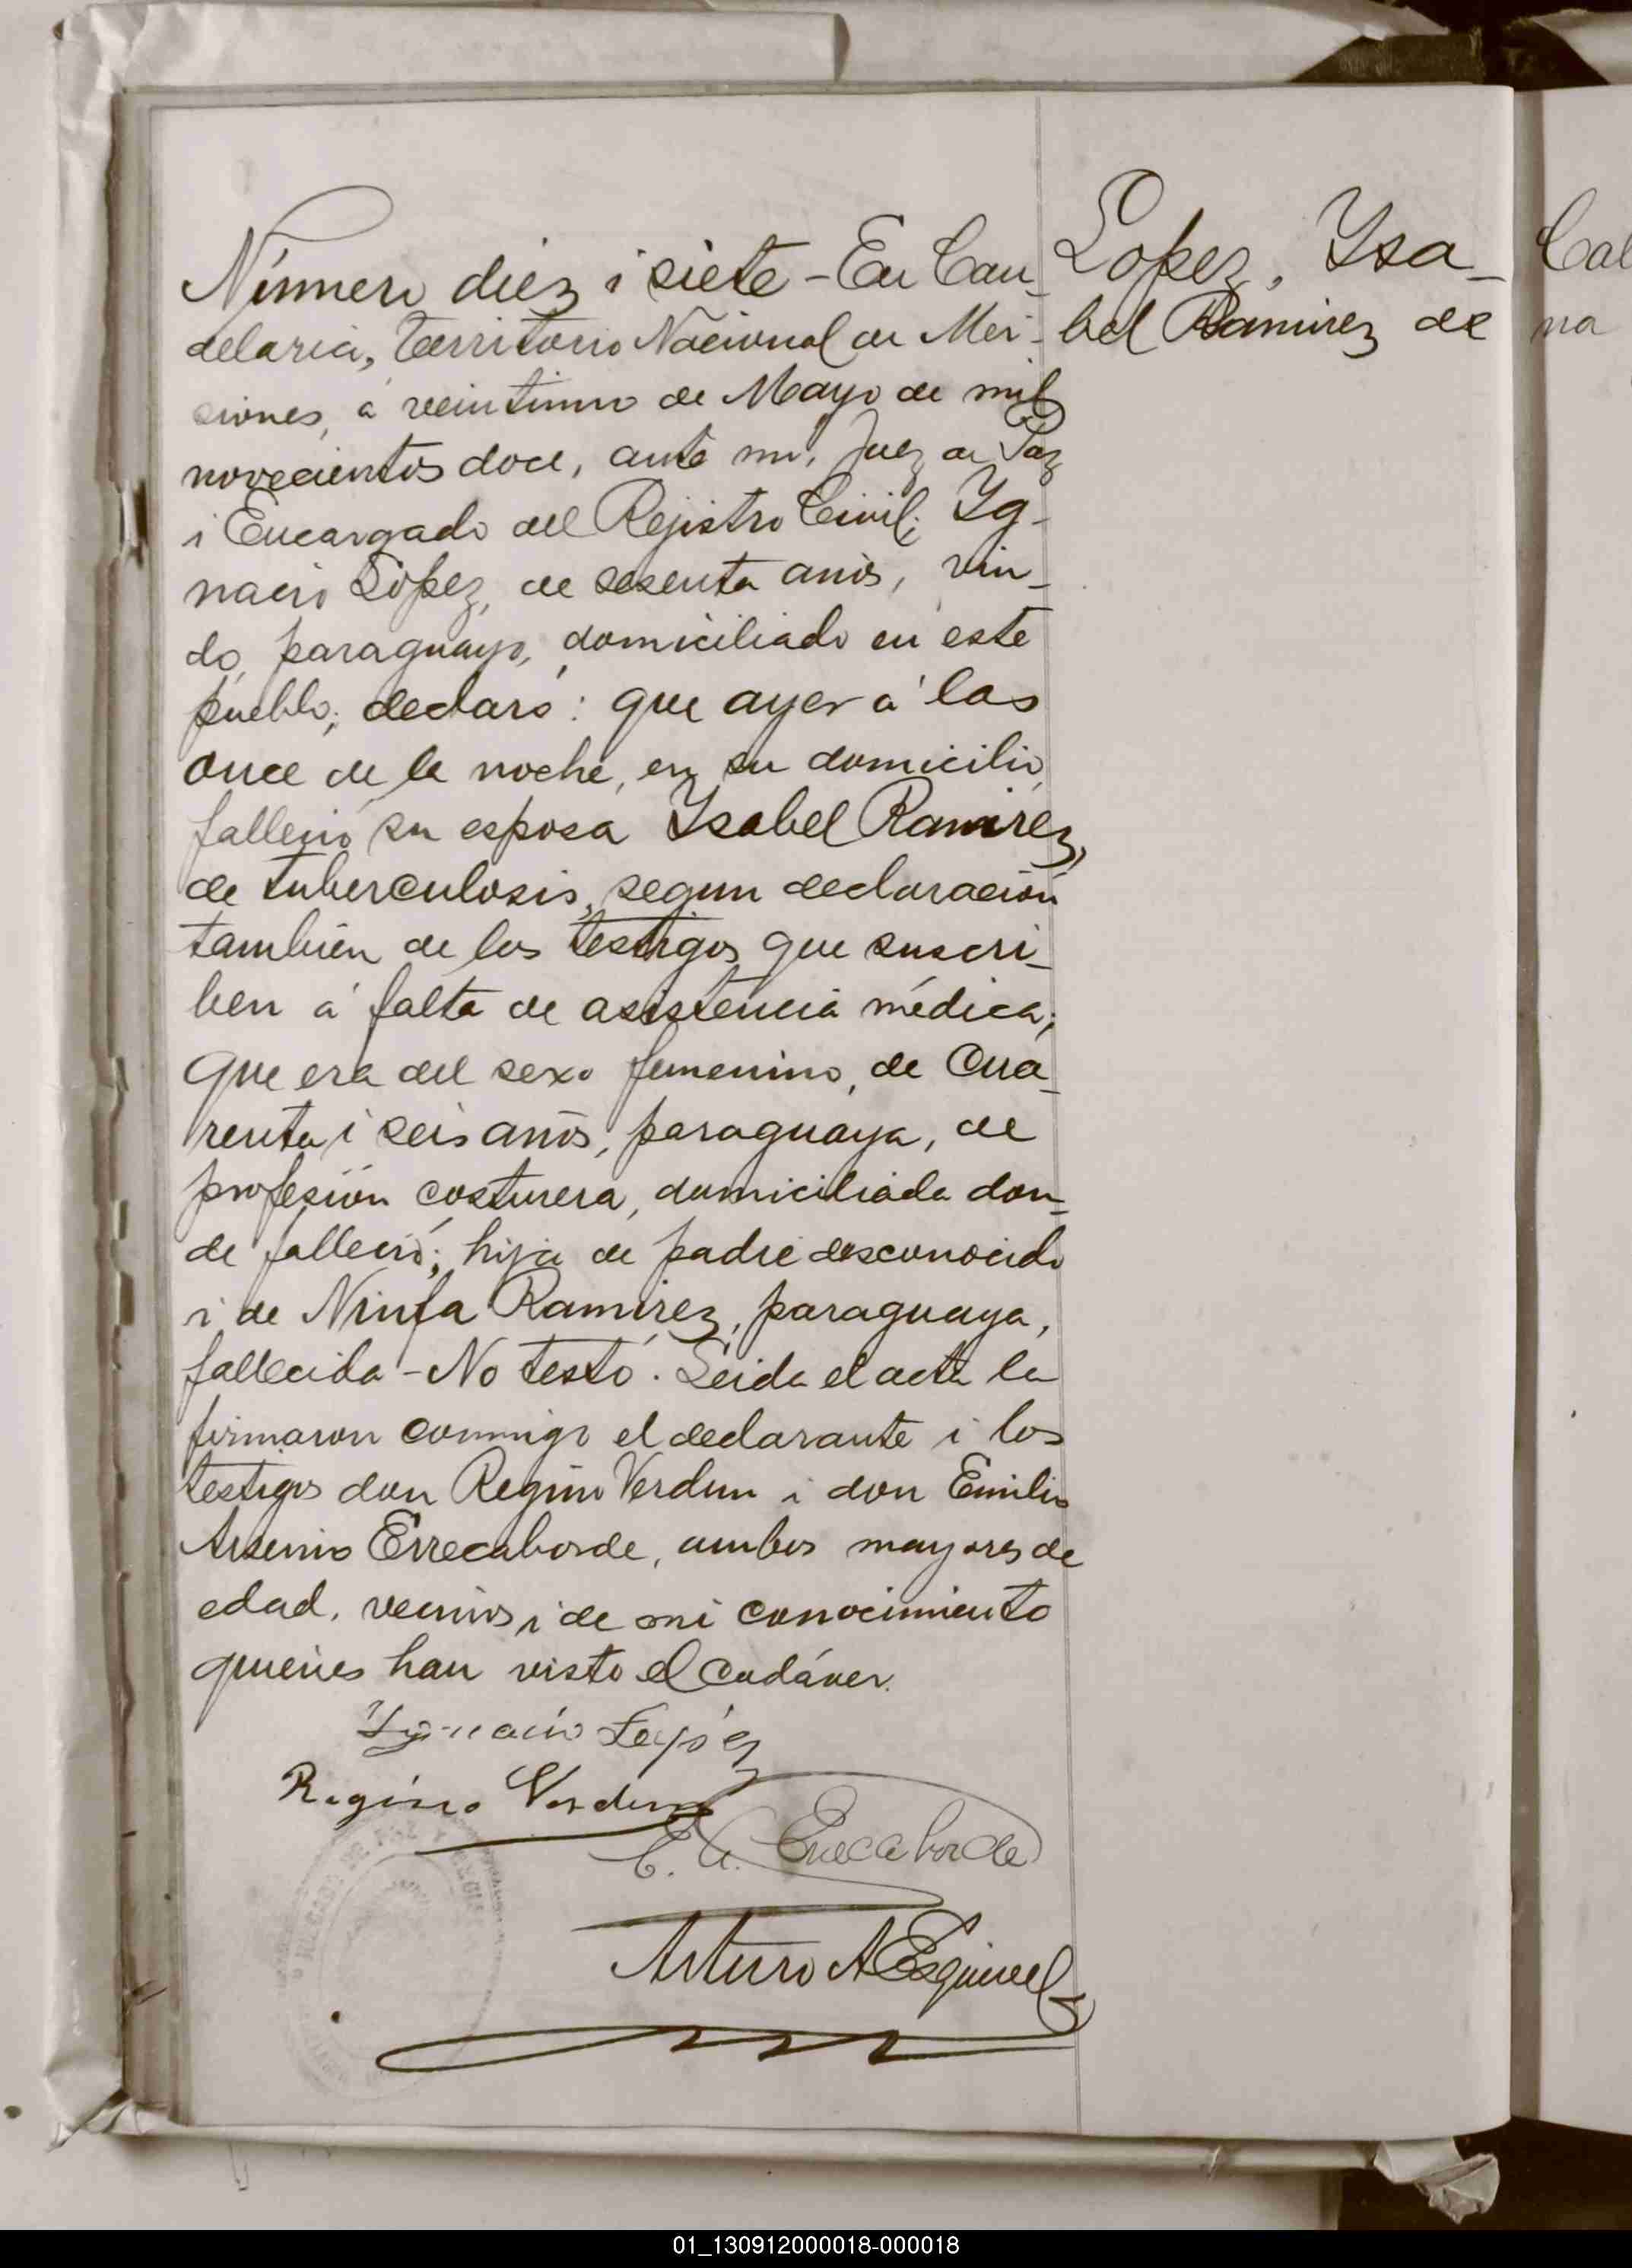 Número diez i siete - En Can-
delaria, Territorio Nacional de Mi-
siones, á veintiuno de Mayo de mil
novecientos doce, ante mi, Juez de Paz
i Encargado del Rejistro Civil; Yg-
nacio López, de sesenta años, viu-
do, paraguayo, domiciliado en este
pueblo; declaró: que ayer á las
once de la noche, en su domicilio,
falleció su esposa Ysabel Ramirez,
de tuberculosis, segun declaración
también de los testigos que suscri-
ben á falta de asistencia médica;
que era del sexo femenino, de cua-
renta i seis años, paraguaya, de
profesión costurera, domiciliada don-
de falleció; hija de padre desconocido
i de Ninfa Ramirez, paraguaya,
fallecida - No testó. Leida el acta la
firmaron conmigo el declarante i los
testigos don Regino Verdun i don Emilio
Arsenio Errecaborde, ambos mayores de
edad, vecinos i de mi conocimiento
quienes han visto el cadáver.
Lopez, Ysa-
bel Ramirez de
Ygnacio Lopez
Regino Verdun
E. A. Errecaborde
Arturo A Esquivel
JUZGADO DE PAZ
Cal
na
01_130912000018-000018